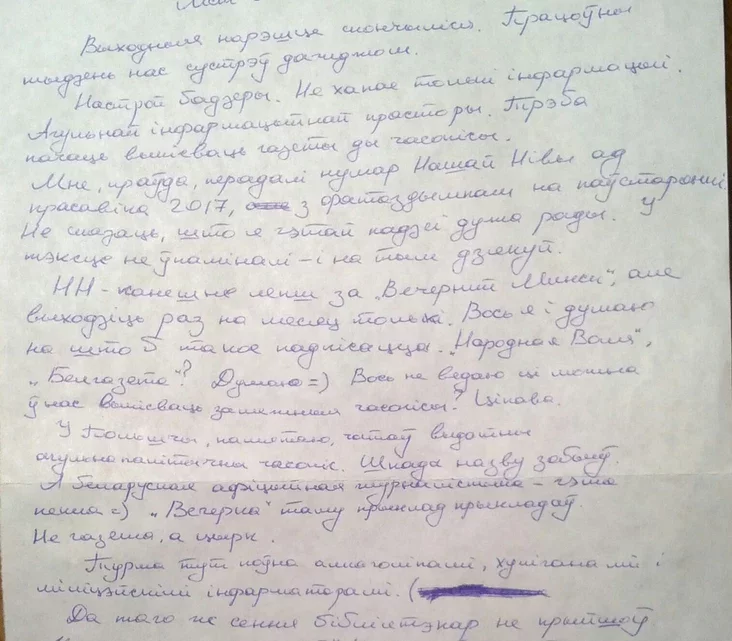 Выходныя нарэшце скончыліся. Працоўны
тыдзень нас сустрэў дажджом.
Настрой бадзёры. Не хапае толькі інфармацыі.
Агульнай інфармацыйнай прасторы. Трэба
пачаць выпісваць газеты ды часопісы.
Мне, праўда, перадалі нумар Нашай Нівы ад
красавіка 2017, з фотаздымкам на паўстаронкі
Не сказаць, што я гэтай падзеі дужа рады. У
тэксце не ўпаміналі - і на тым дзякуй.
НН - канешне лепш за "Вечерний Минск", але
выходзіць раз на месяц толькі. Вось я і думаю
на што б такое падпісацца. "Народная Воля",
"Белгазета"? Думаю =) Вось не ведаю ці можна
ў нас выпісваць замежныя часопісы? Цікава.
У Польшчы, памятаю, чытаў выдатны
агульнапалітычны часопіс. Шкада назву забыў.
А беларуская афіцыйная журналістыка - гэта
=) "Вечерка" таму прыклад прыкладаў.
Не газета, а цырк.
Турма тут поўна алкаголікамі, хуліганамі і
міліцэйскімі інфарматарамі. (
Да таго ж сення бібліятэкар не прыйшоў